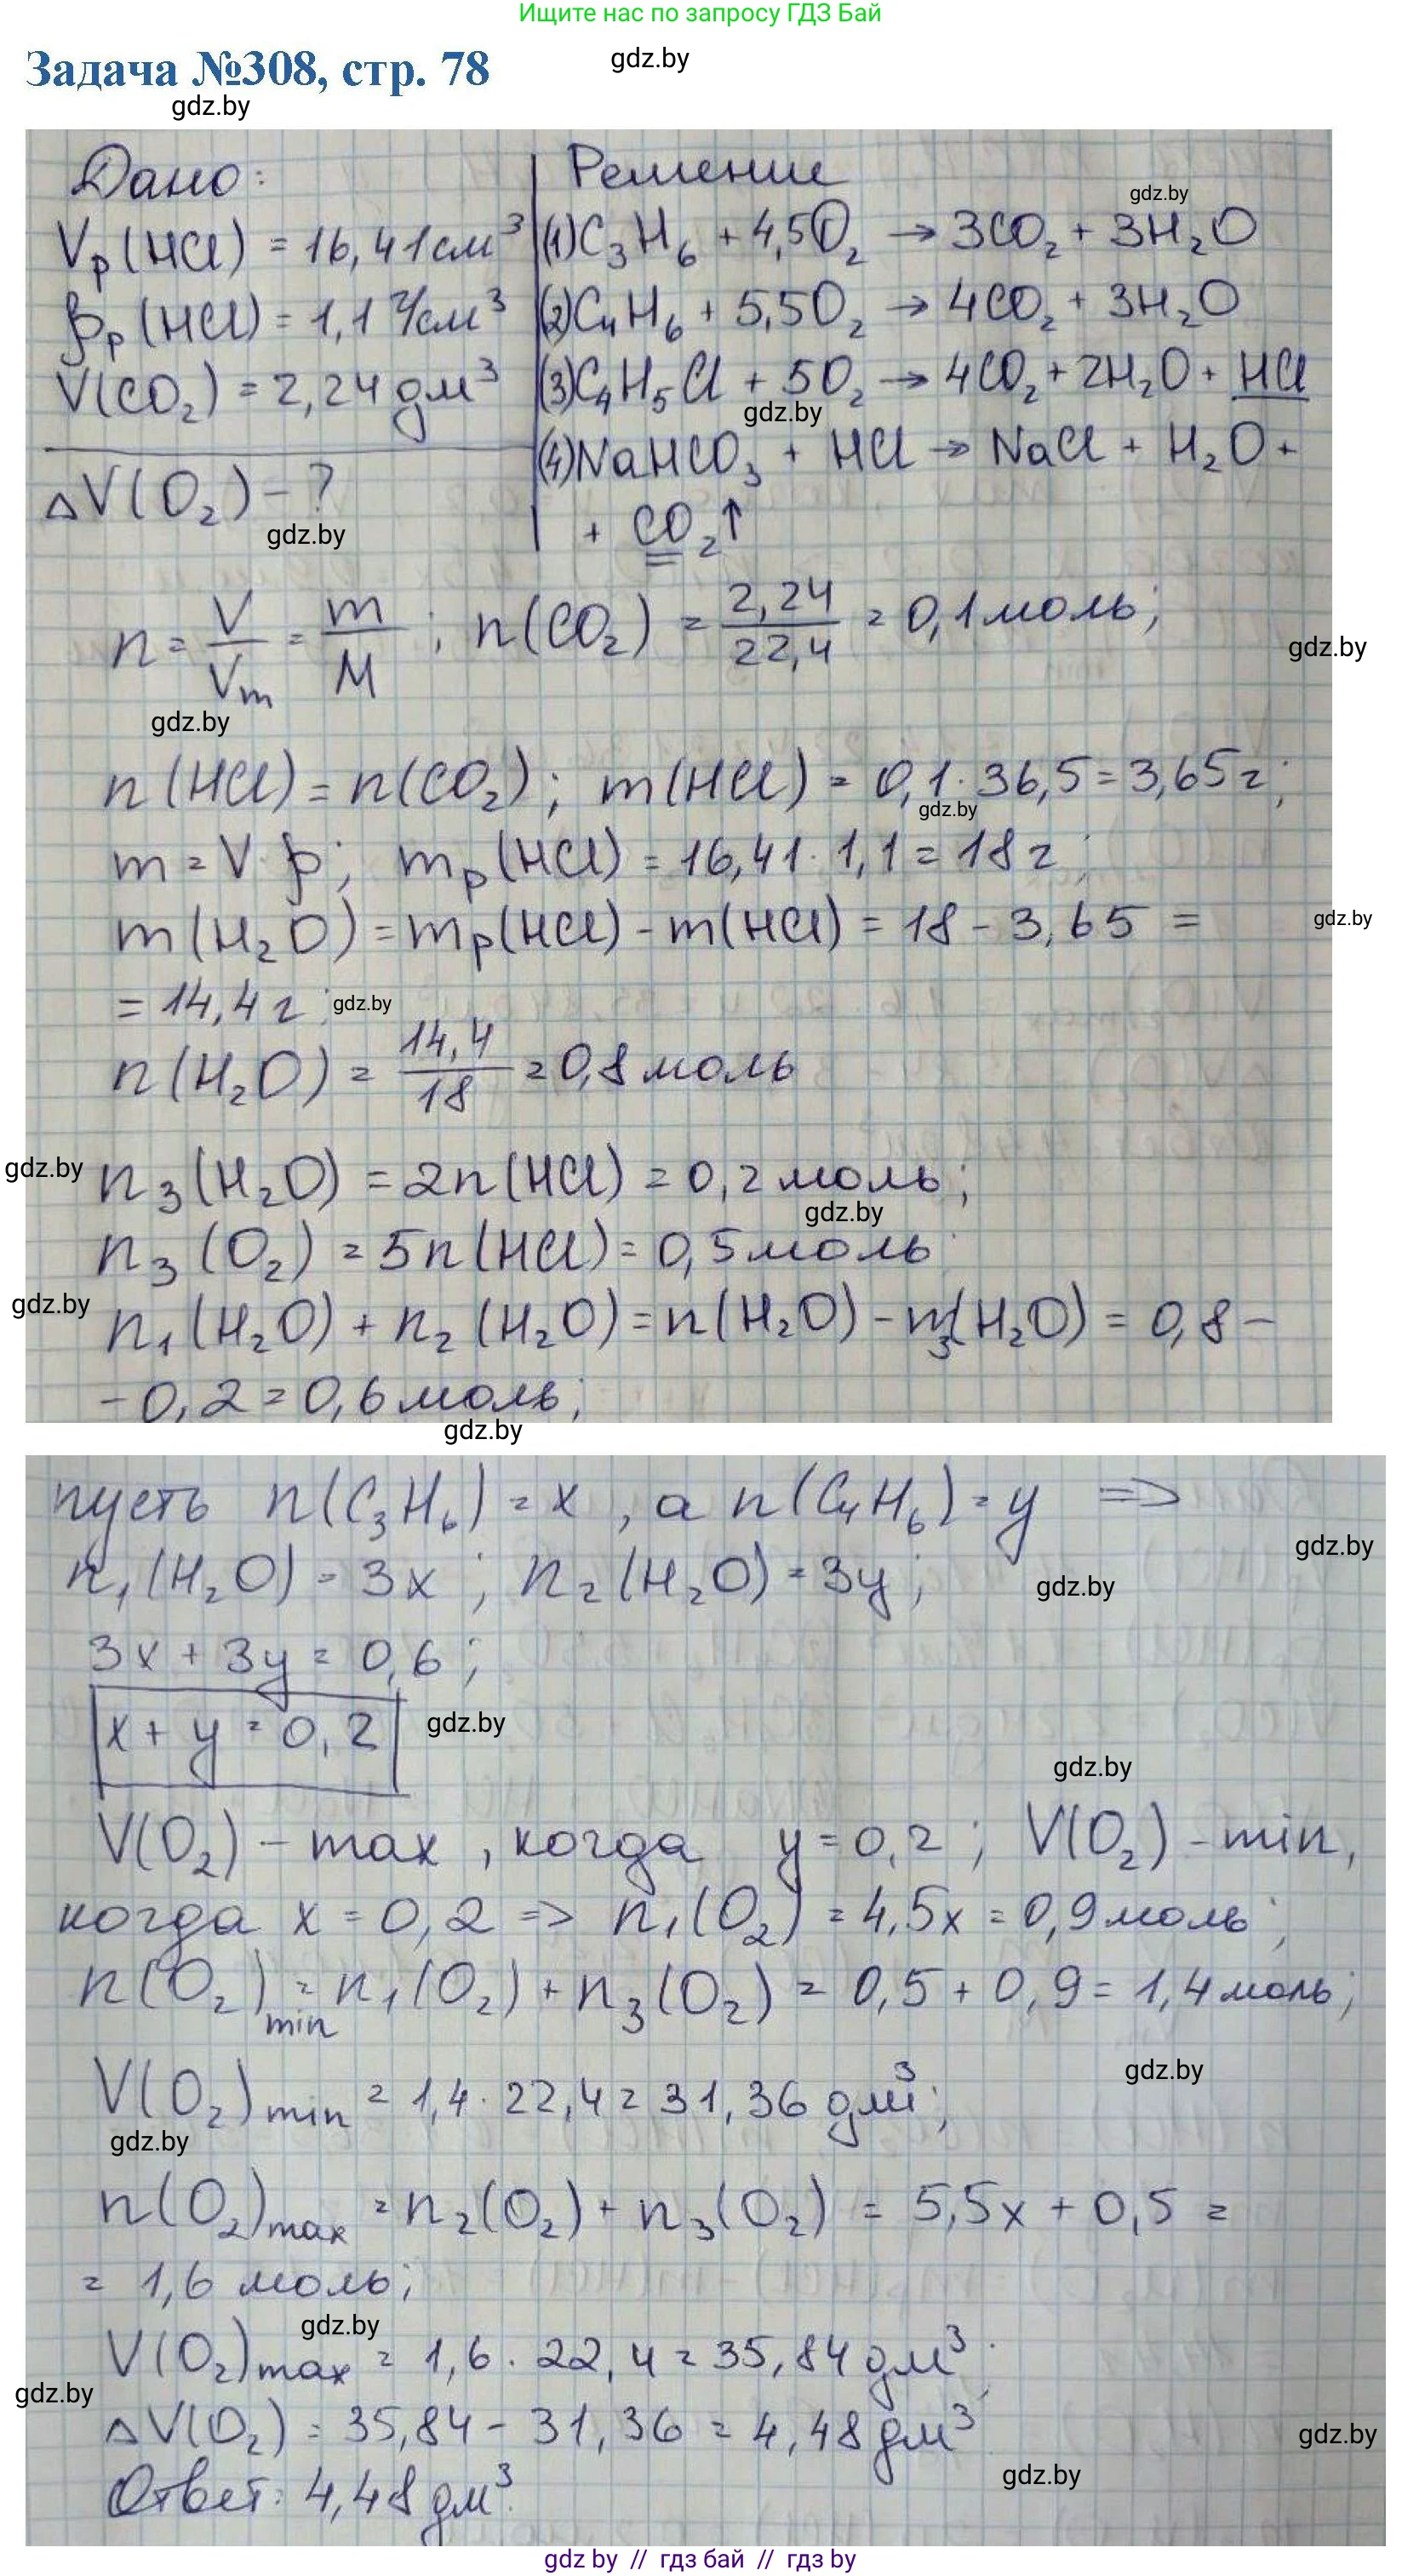 Ищите нас по запросу ГДЗ Бай
Задача №308, стр. 78
gdz.by
gdz.by
Дано:
Vр(HCl) = 16,41 см³
ρр(HCl) = 1,1 г/см³
V(CO₂) = 2,24 дм³
ΔV(O₂) - ?
gdz.by
Решение
gdz.by
(1) C₃H₆ + 4,5O₂ → 3CO₂ + 3H₂O
(2) C₄H₆ + 5,5O₂ → 4CO₂ + 3H₂O
(3) C₄H₅Cl + 5O₂ → 4CO₂ + 2H₂O + HCl
gdz.by
(4) NaHCO₃ + HCl → NaCl + H₂O +
+ CO₂↑
n = V/Vm = m/M ; n(CO₂) = 2,24/22,4 = 0,1 моль;
gdz.by
gdz.by
n(HCl) = n(CO₂); m(HCl) = 0,1 · 36,5 = 3,65 г;
gdz.by
m = V·ρ; mр(HCl) = 16,41 · 1,1 = 18 г;
m(H₂O) = mр(HCl) - m(HCl) = 18 - 3,65 =
gdz.by
= 14,4 г;
gdz.by
n(H₂O) = 14,4/18 = 0,8 моль
gdz.by
n₃(H₂O) = 2n(HCl) = 0,2 моль;
gdz.by
n₃(O₂) = 5n(HCl) = 0,5 моль
gdz.by
n₁(H₂O) + n₂(H₂O) = n(H₂O) - n₃(H₂O) = 0,8 -
- 0,2 = 0,6 моль;
gdz.by
пусть n(C₃H₆) = x, а n(C₄H₆) = y ⇒
gdz.by
n₁(H₂O) = 3x; n₂(H₂O) = 3y;
gdz.by
3x + 3y = 0,6;
x + y = 0,2
gdz.by
gdz.by
V(O₂) - max, когда y = 0,2; V(O₂) - min,
когда x = 0,2 ⇒ n₁(O₂) = 4,5x = 0,9 моль;
n(O₂)min = n₁(O₂) + n₃(O₂) = 0,5 + 0,9 = 1,4 моль;
gdz.by
V(O₂)min = 1,4 · 22,4 = 31,36 дм³;
gdz.by
n(O₂)max = n₂(O₂) + n₃(O₂) = 5,5x + 0,5 =
= 1,6 моль;
gdz.by
V(O₂)max = 1,6 · 22,4 = 35,84 дм³;
gdz.by
ΔV(O₂) = 35,84 - 31,36 = 4,48 дм³
gdz.by
gdz.by
Ответ: 4,48 дм³.
gdz by // гдз бай // гдз by